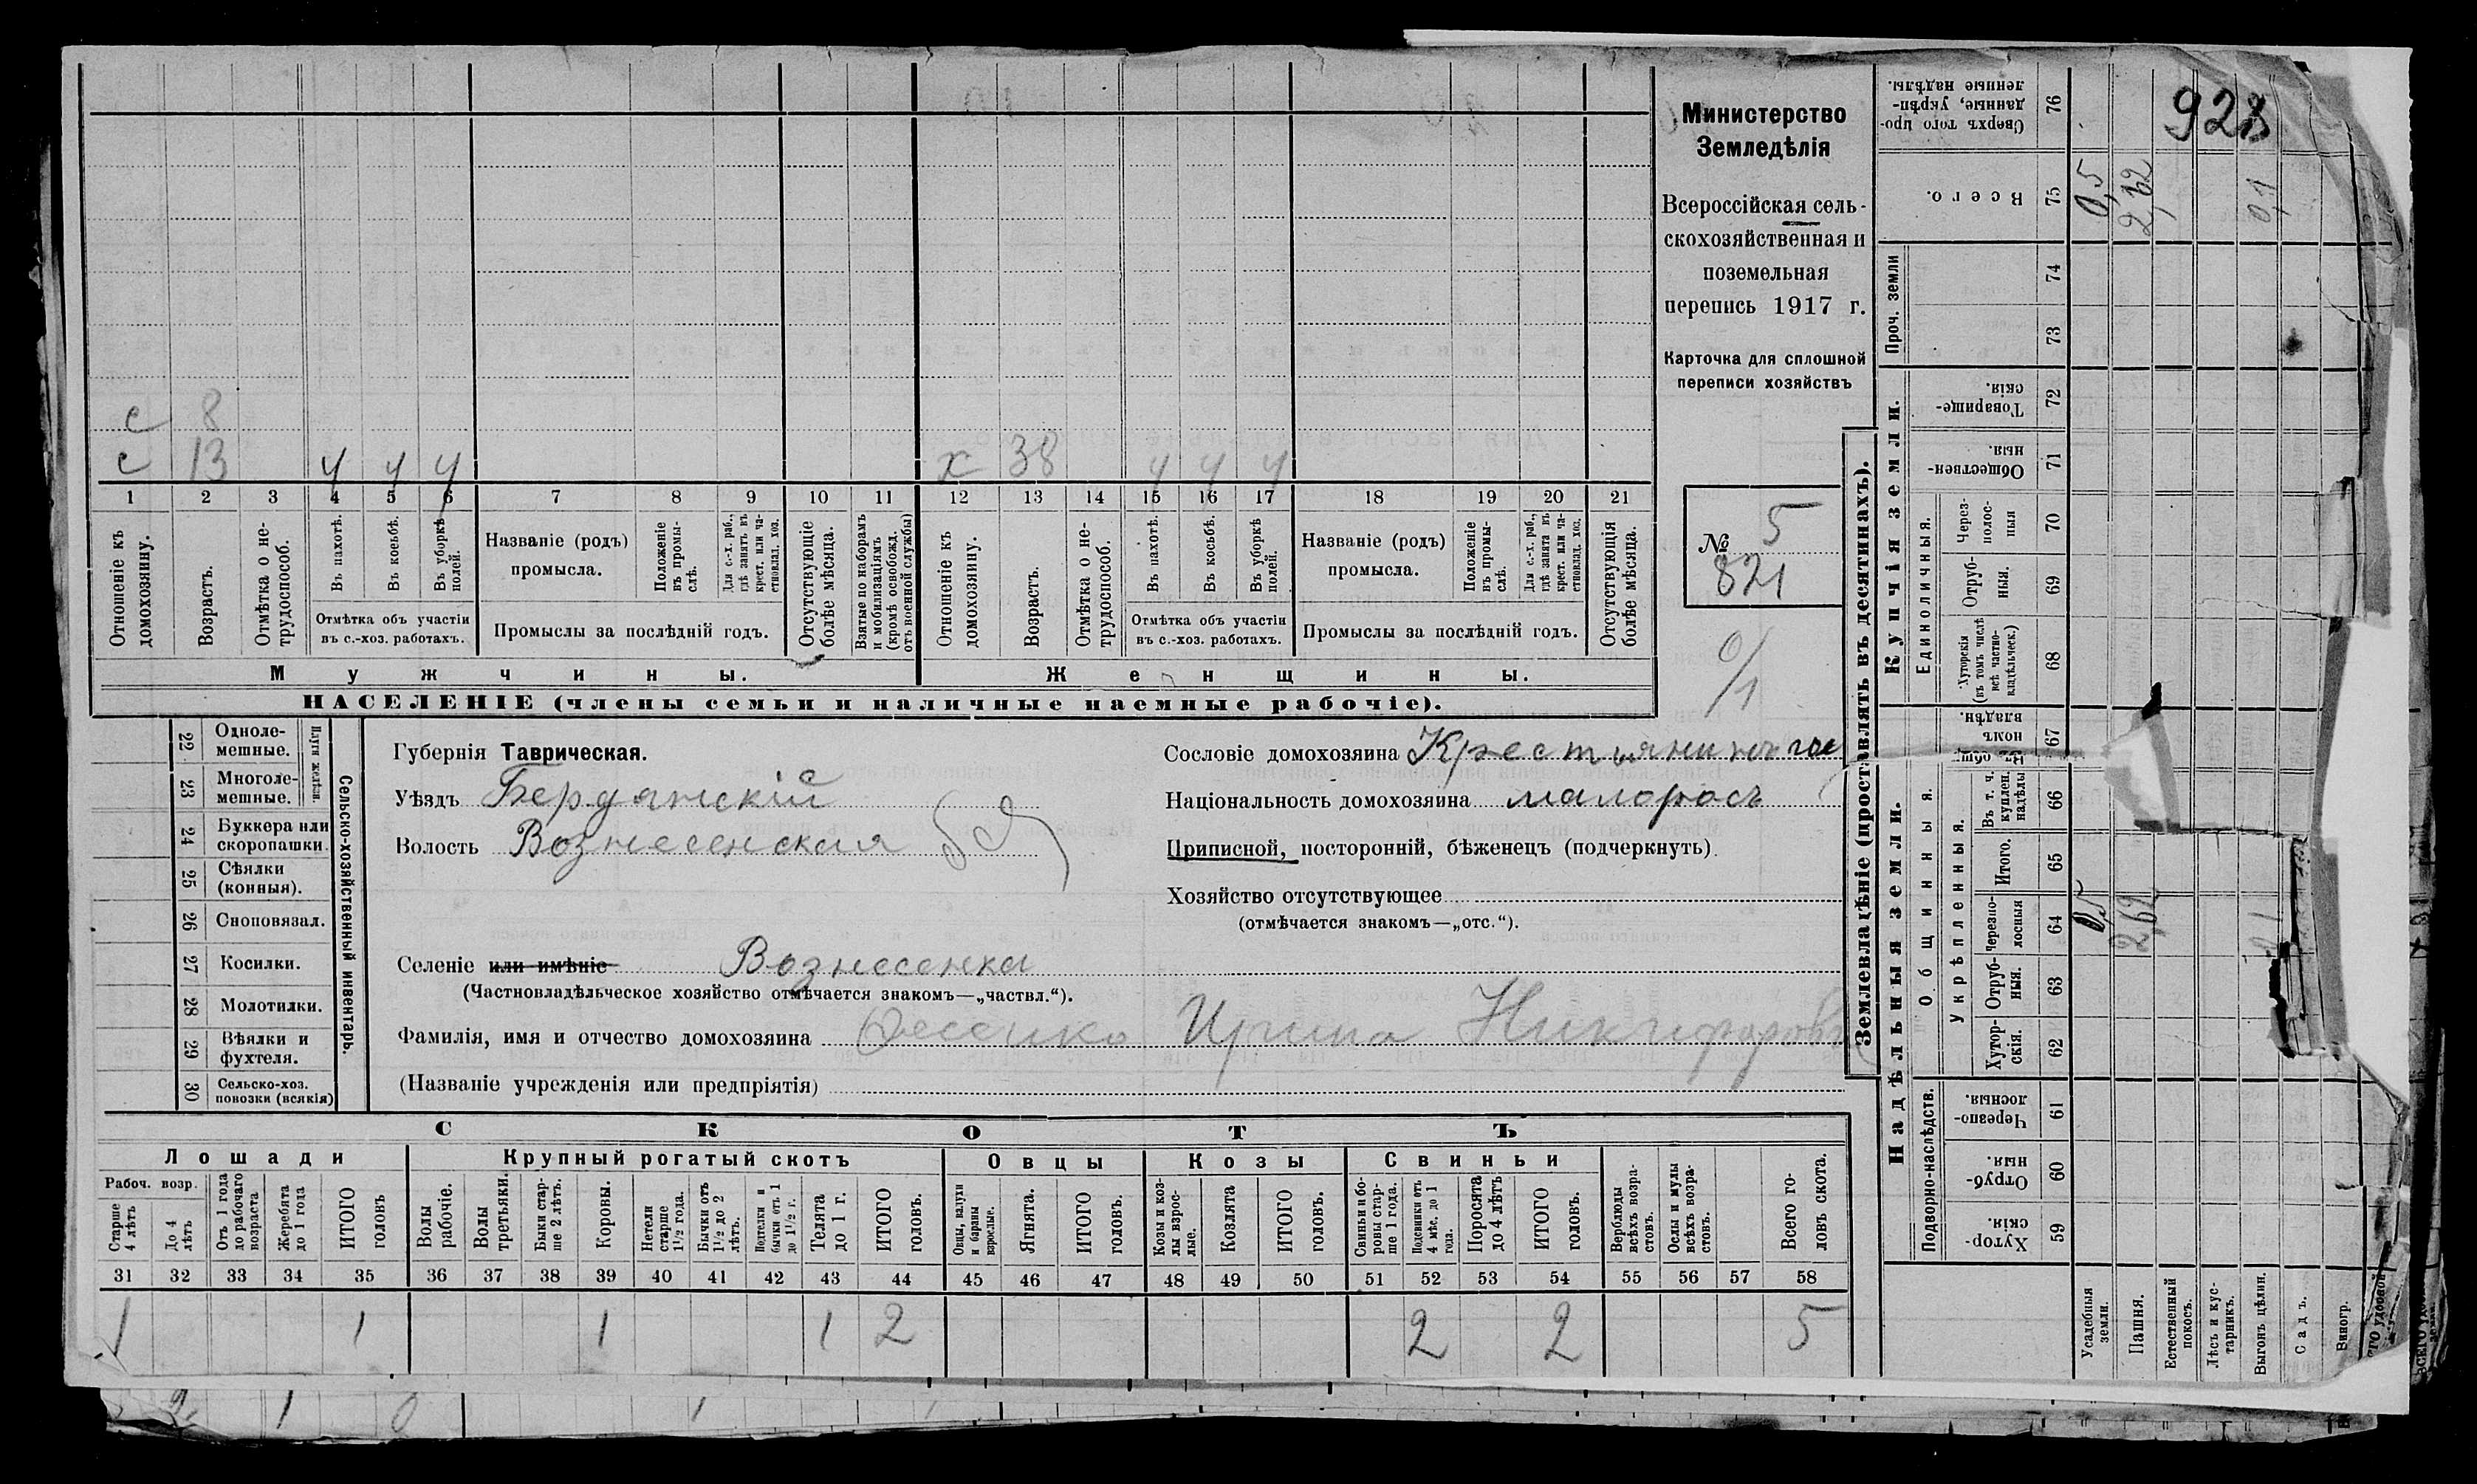 Министерство
Земледѣлія
Всероссійская сель-
скохозяйственная и
поземельная
перепись 1917 г.
Карточка для сплошной
переписи хозяйствъ
№ 5
821
0/1
928
с 8
с 13 ч ч ч х 38 ч ч ч
1 2 3 4 5 6 7 8 9 10 11 12 13 14 15 16 17 18 19 20 21
Отношеніе къ домохозяину.
Возрастъ.
Отмѣтка о не-трудоспособ.
Въ пахотѣ.
Въ косьбѣ.
Въ уборкѣ полей.
Отмѣтка объ участіи
въ с.-хоз. работахъ.
Названіе (родъ)
промысла.
Положеніе въ промы-слѣ.
Для с.-х. раб., гдѣ занятъ въ крест. или ча-стновлад. хоз.
Промыслы за послѣдній годъ.
Отсутствующіе болѣе мѣсяца.
Взятые по наборамъ и мобилизаціямъ (кромѣ освобожд. отъ военной службы)
Отношеніе къ домохозяину.
Возрастъ.
Отмѣтка о не-трудоспособ.
Въ пахотѣ.
Въ косьбѣ.
Въ уборкѣ полей.
Отмѣтка объ участіи
въ с.-хоз. работахъ.
Названіе (родъ)
промысла.
Положеніе въ промы-слѣ.
Для с.-х. раб., гдѣ занята въ крест. или ча-стновлад. хоз.
Промыслы за послѣдній годъ.
Отсутствующія болѣе мѣсяца.
Мужчины. Женщины.
НАСЕЛЕНІЕ (члены семьи и наличные наемные рабочіе).
22 Одноле-мешные.
23 Многоле-мешные.
Плуги желѣзн.
24 Буккера или скоропашки.
25 Сѣялки (конныя).
26 Сноповязал.
27 Косилки.
28 Молотилки.
29 Вѣялки и фухтеля.
30 Сельско-хоз. повозки (всякія)
Сельско-хозяйственный инвентарь.
Губернія Таврическая.
Уѣздъ Бердянскій
Волость Вознесенская
Сословіе домохозяина
Національность домохозяина малоросъ
Приписной, посторонній, бѣженецъ (подчеркнуть).
Хозяйство отсутствующее
(отмѣчается знакомъ—„отс.“).
Селеніе или имѣніе Вознесенка
(Частновладѣльческое хозяйство отмѣчается знакомъ—„частвл.“).
Фамилія, имя и отчество домохозяина Ирина
(Названіе учрежденія или предпріятія)
СКОТЪ
Лошади Крупный рогатый скотъ Овцы Козы Свиньи
Рабоч. возр.
Старше 4 лѣтъ
До 4 лѣтъ
Отъ 1 года до рабочаго возраста
Жеребята до 1 года
ИТОГО головъ
Волы рабочіе.
Волы третьяки.
Быки стар-ше 2 лѣтъ.
Коровы.
Нетели старше 1½ года.
Бычки отъ 1½ до 2 лѣтъ.
Подтелки и бычки отъ 1 до 1½ г.
Телята до 1 г.
ИТОГО головъ.
Овцы, валухи и бараны взрослые.
Ягнята.
ИТОГО головъ.
Козы и коз-лы взрос-лые.
Козлята
ИТОГО головъ.
Свиньи и бо-ровы стар-ше 1 года.
Подсвинки отъ 4 мѣс. до 1 года.
Поросята до 4 лѣтъ
ИТОГО головъ.
Верблюды всѣхъ возра-стовъ.
Ослы и мулы всѣхъ возра-стовъ.
Всего го-ловъ скота.
31 32 33 34 35 36 37 38 39 40 41 42 43 44 45 46 47 48 49 50 51 52 53 54 55 56 57 58
1 1 1 1 2 2 2 5
Землевладѣніе (проставлять въ десятинахъ).
Надѣльныя земли.
Купчія земли.
Проч. земли
Подворно-наслѣдств.
Общинныя.
Укрѣпленныя.
Единоличныя.
76 Сверхъ того про-данные, укрѣп-ленные надѣлы.
75 Всего. 0,5 2,62 0,1
74
73
72 Товарище-скія.
71 Обществен-ныя
70 Через-полос-ныя
69 Отруб-ныя.
68 Хуторскія (въ томъ числѣ всѣ частно-владѣльческ.)
67
66 Въ т. ч. куплен. надѣлы
65 Итого.
64 Черезпо-лосныя 0,5 2,62
63 Отруб-ныя.
62 Хутор-скія.
61 Черезпо-лосныя.
60 Отруб-ныя.
59 Хутор-скія.
Усадебныя земли.
Пашня.
Естественный покосъ.
Лѣсъ и кус-тарникъ.
Выгонъ цѣлин.
Садъ.
Виногр.